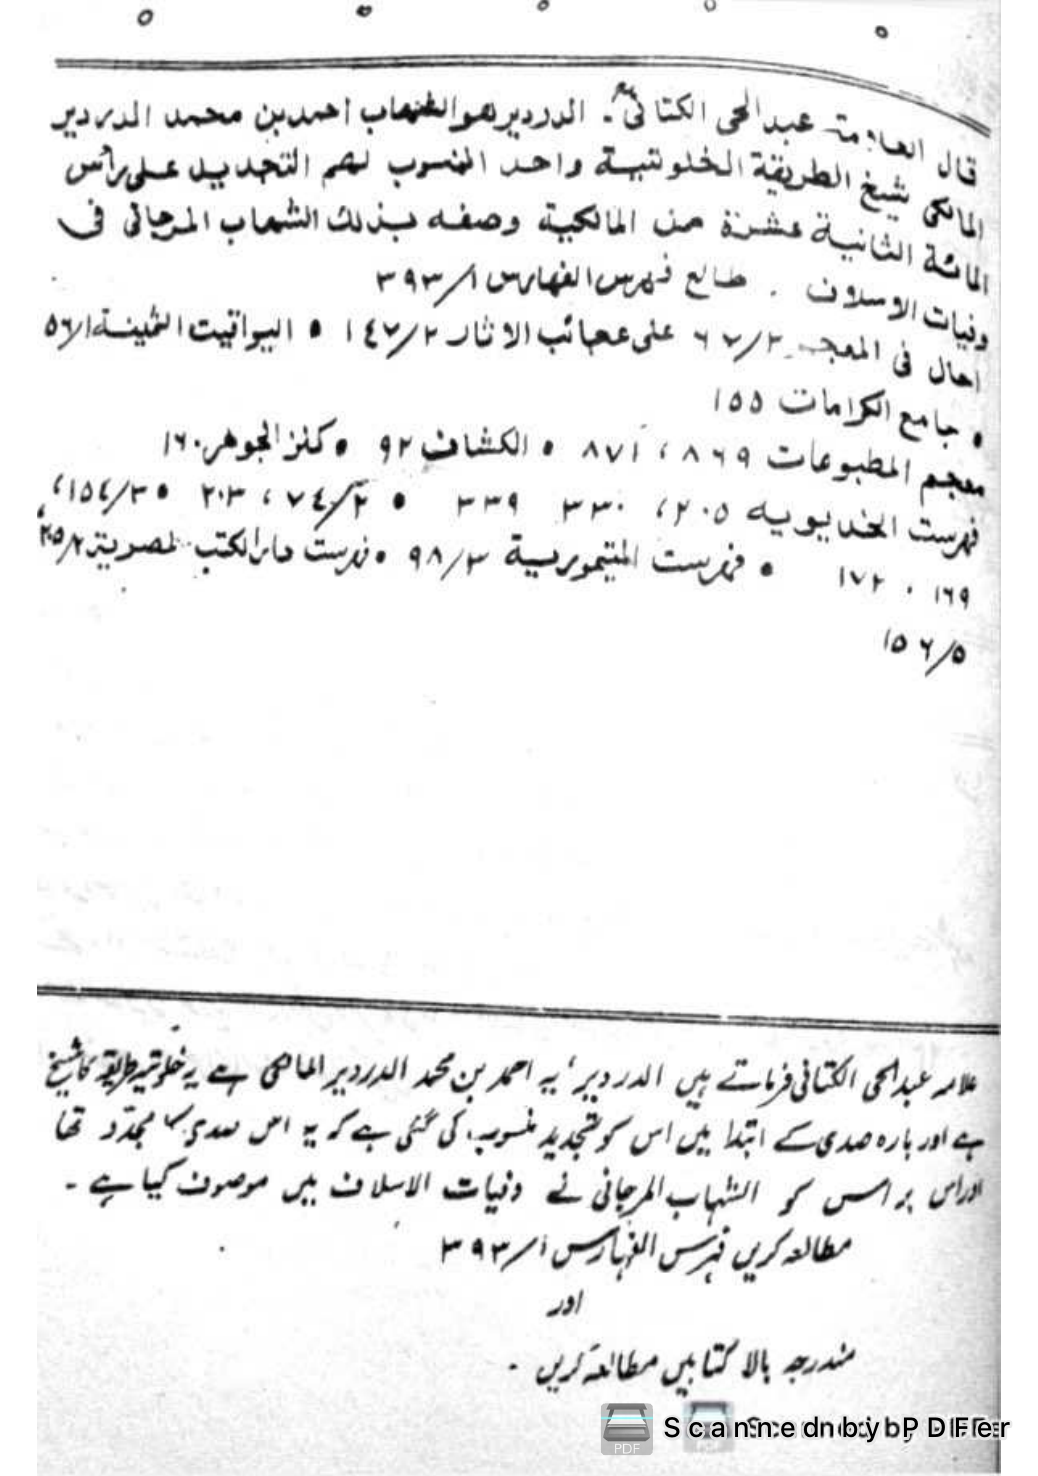 قال العلامة عبدالحی الکتانیؒ. الدردیر هو الشهاب احمد بن محمد الدردیر
المالکی شیخ الطریقة الخلوتیة واحد المنسوب لهم التجدید علی رأس
المائة الثانیة عشرة من المالکیة وصفه بذلك الشهاب المرجانی فی
وفیات الاسلاف . طالع فهرس الفهارس ١/٣٩٣
احال فی المعجم ٢/٦٧ علی عجائب الاثار ٢/١٤٧ • الیواقیت الثمینة ١/٥٦
• جامع الکرامات ١٥٥
معجم المطبوعات ٨٦٩ ، ٨٧١ • الکشاف ٩٢ • کنز الجوهر ١٦٠
فهرست الخدیویه ٢٠٥ ، ٣٣٠ ٣٣٩ • ٢/٧٤ ، ٢٠٣ • ٣/١٥٤ ،
١٦٩ ، ١٧٢ • فهرست التیموریة ٣/٩٨ • فهرست دار الکتب المصریة ٢/٢٠٥،
٥/١٥٦
علامہ عبدالحی الکتانی فرماتے ہیں الدردیر ، یہ احمد بن محمد الدردیر المالکی ہے یہ خلوتیہ طریقہ کا شیخ
ہے اور بارہ صدی کے ابتدا میں اس کو تجدید منسوب کی گئی ہے کہ یہ اس صدی کا مجدّد تھا
اور اس پر اس کو الشہاب المرجانی نے وفیات الاسلاف میں موصوف کیا ہے ۔
مطالعہ کریں فہرس الفہارس ١/٣٩٣
اور
مندرجہ بالا کتابیں مطالعہ کریں ۔
PDF
Scanned by PDFer